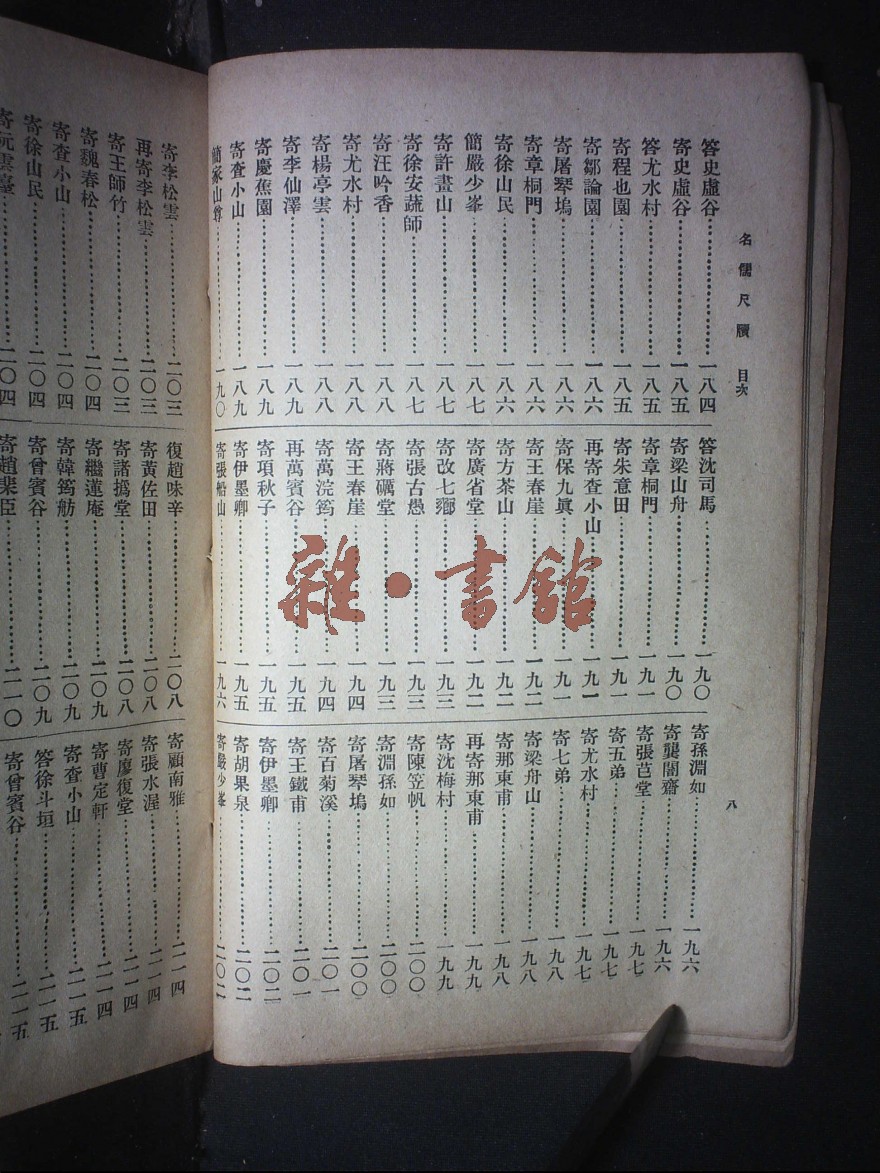 名儒尺牘 目次
八
答史虛谷………一八四
寄史虛谷………一八五
答尤水村………一八五
寄程也園………一八五
寄鄒論園………一八六
寄屠琴塢………一八六
寄章桐門………一八六
寄徐山民………一八六
簡嚴少峯………一八七
寄許畫山………一八七
寄徐安蔬師………一八七
寄汪吟香………一八八
寄尤水村………一八八
寄楊亭雲………一八八
寄李仙澤………一八九
寄慶蕉園………一八九
寄查小山………一八九
簡家山尊………一九〇
答沈司馬………一九〇
寄梁山舟………一九〇
寄章桐門………一九一
寄朱意田………一九一
再寄查小山………一九一
寄保九眞………一九一
寄王春崖………一九二
寄方茶山………一九二
寄廣省堂………一九二
寄改七薌………一九三
寄張古愚………一九三
寄蔣礪堂………一九三
寄王春崖………一九四
寄萬浣筠………一九四
再萬賓谷………一九五
寄項秋子………一九五
寄伊墨卿………一九五
寄張船山………一九六
寄孫淵如………一九六
寄龔闇齋………一九六
寄張芑堂………一九七
寄五弟………一九七
寄尤水村………一九七
寄七弟………一九八
寄梁舟山………一九八
寄那東甫………一九八
再寄那東甫………一九九
寄沈梅村………一九九
寄陳笠帆………二〇〇
寄淵孫如………二〇〇
寄屠琴塢………二〇〇
寄百菊溪………二〇一
寄王鐵甫………二〇一
寄伊墨卿………二〇二
寄胡果泉………二〇二
寄嚴少峯………二〇二
寄李松雲………二〇三
再寄李松雲………二〇三
寄王師竹………二〇三
寄魏春松………二〇四
寄查小山………二〇四
寄徐山民………二〇四
寄阮雲臺………二〇四
復趙味辛………二〇八
寄黃佐田………二〇八
寄諸撝堂………二〇八
寄繼蓮庵………二〇九
寄韓筠舫………二〇九
寄曾賓谷………二〇九
寄趙棐臣………二一〇
寄顧南雅………二一四
寄張水渥………二一四
寄廖復堂………二一四
寄曹定軒………二一四
寄查小山………二一五
答徐斗垣………二一五
寄曾賓谷………二一五
雜·書館